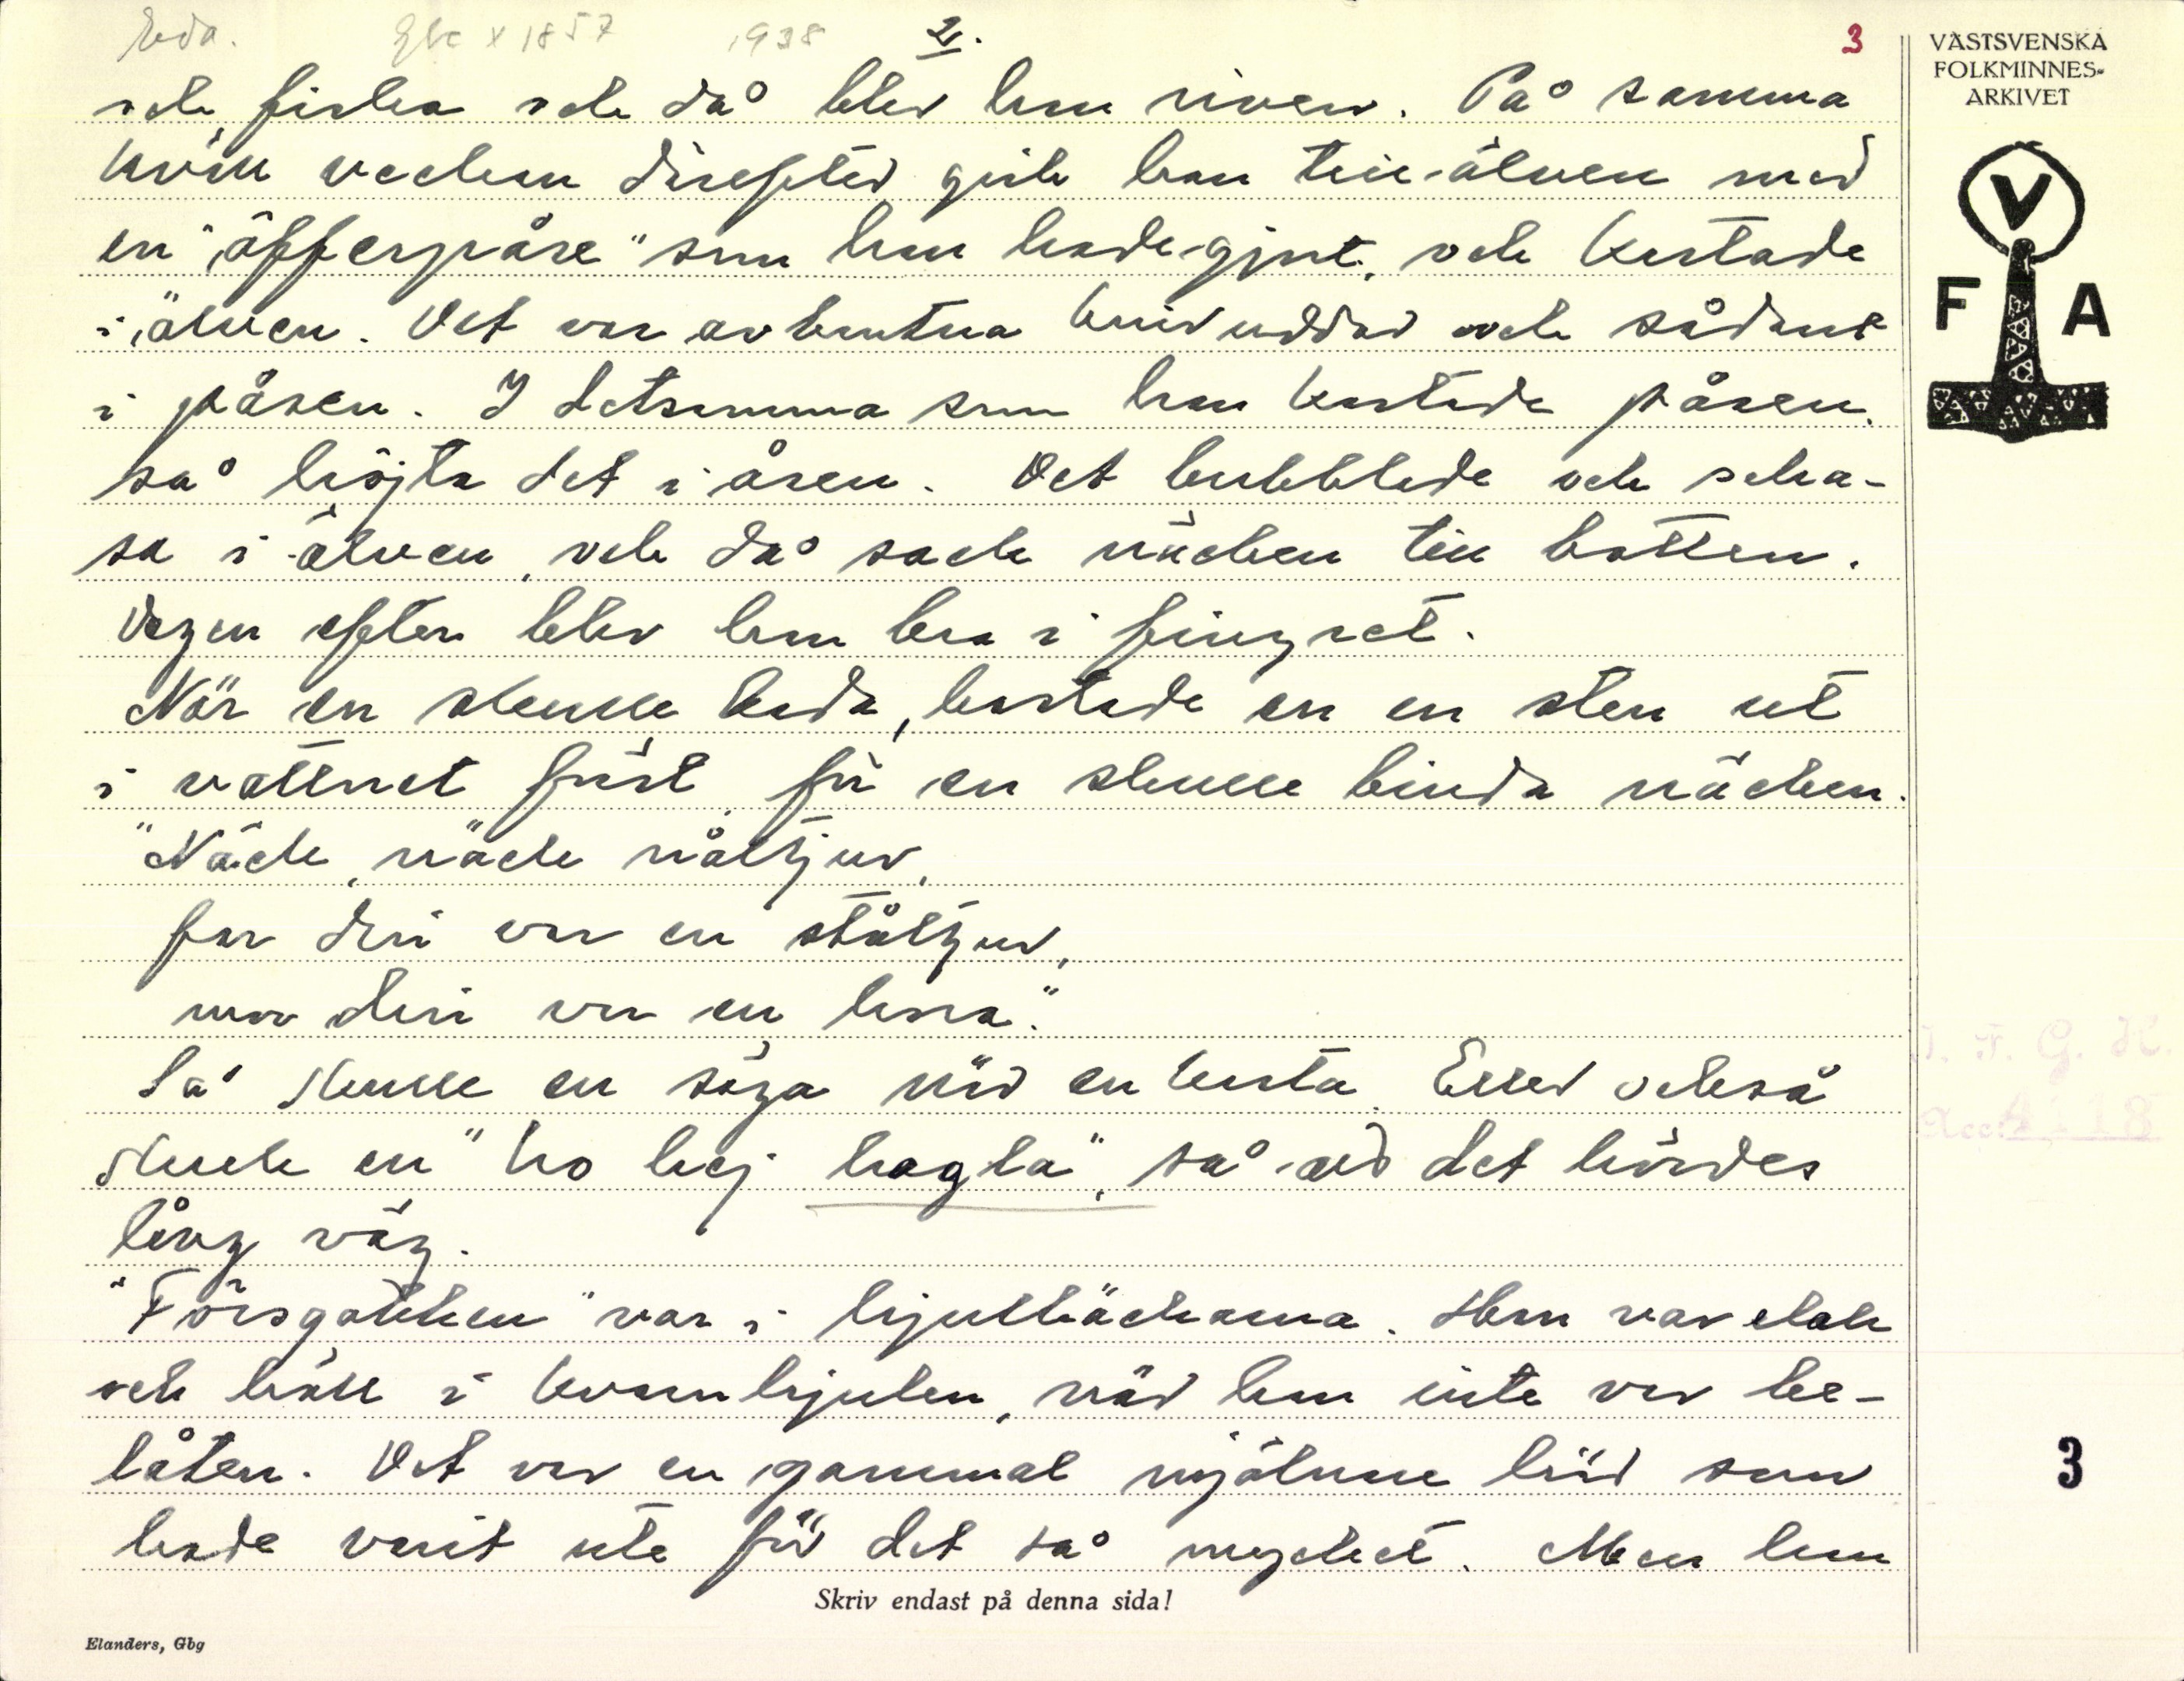 Eda. 1857 1938 2. 3
och fiska och då blev han riven. På samma
kväll veckan därefter gick han till älven med
en "offerpåse" som han hade gjort, och kastade
i älven. Det var avbrutna knivuddar och sådant
i påsen. I detsamma som han kastade påsen,
så höjta det i åsen. Det bubblade och
sa i älven, och då sack näcken till botten.
Dagen efter blev han bra i fingret.
När en skulle bada, kastade en en sten ut
i vattnet först, för en skulle binda näcken.
"Näck, näck nåltjuv,
far din var en ståltjuv,
mor din var en hora."
Så skulle en säga när en kasta. Eller också
skulle en "ho hej hagla", så att det hördes
lång väg.
"Forsgubben" var i hjulbäckarna. Han var elak
och höll i kvarnhjulen, när han inte var be-
låten. Det var en gammal mjölnare här som
hade varit ute för det så mycket. Men han
Skriv endast på denna sida!
Elanders, Gbg
VÄSTSVENSKA
FOLKMINNES-
ARKIVET
V
F A
I. F. G. H.
Acc: 4118
3